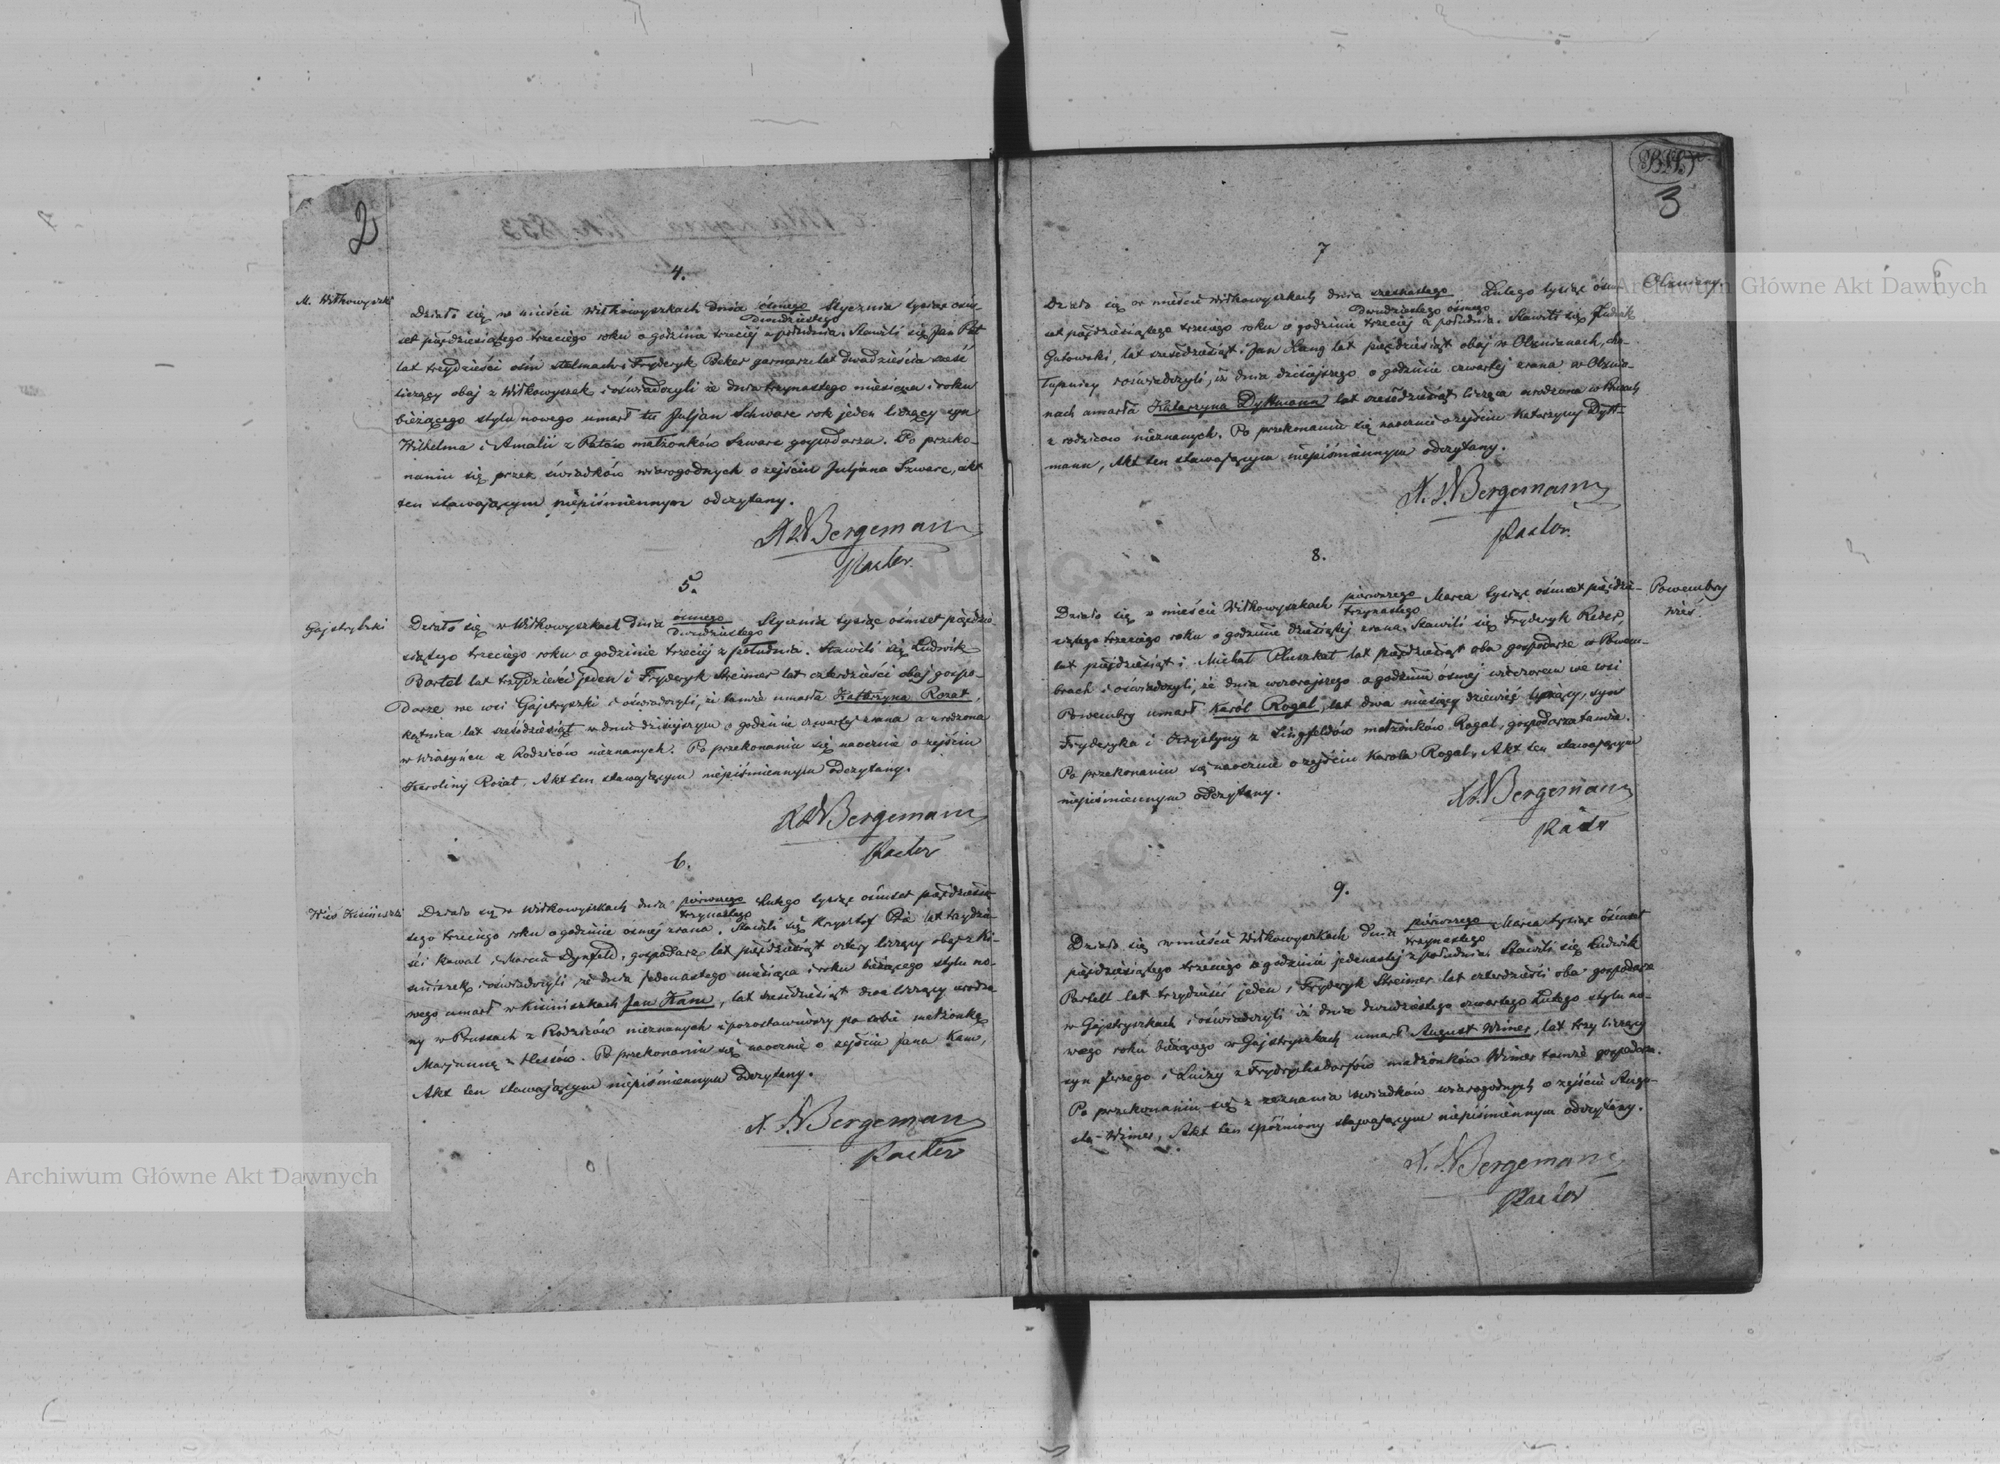 2
4.
M. Wiłkowyszki
Działo się w mieście Wiłkowyszkach dnia ósmego Stycznia tysiąc ośm-
dwudziestego
set pięćdziesiątego trzeciego roku o godzinie trzeciej z południa. Stawili się Jan Pat
lat trzydzieści ośm stelmach i Fryderyk Beker garncarz lat dwadzieścia sześć
liczący obaj z Wiłkowyszek i oświadczyli że dnia trzynastego miesiąca i roku
bieżącego stylu nowego umarł tu Juljan Schwarc rok jeden liczący syn
Wilhelma i Amalii z Patów małżonków Szwarc gospodarzu. Po przeko-
naniu się przez świadków wiarogodnych o zejściu Juljana Szwarc, akt
ten stawającym niepiśmiennym odczytany.
Bergemann
Pastor.
5.
Gajstryszki
Działo się w Wiłkowyszkach dnia ósmego Stycznia tysiąc ośmset pięćdzie-
dwudziestego
siątego trzeciego roku o godzinie trzeciej z południa. Stawili się Ludwik
Bartel lat trzydzieści jeden i Fryderyk Streimer lat czterdzieści obaj gospo-
darze we wsi Gajstryszki i oświadczyli, że tamże umarła Katarzyna Rozat,
kątnica lat sześćdziesiąt w dniu dzisiejszym o godzinie czwartej zrana a urodzona
w z Rodziców nieznanych. Po przekonaniu się naocznie o zejściu
Karoliny Rozat, Akt ten stawającym niepiśmiennym odczytany.
Bergemann
Pastor
6.
Wieś Kisiniszki
Działo się w Wiłkowyszkach dnia pierwszego Lutego tysiąc ośmset pięćdziesią-
trzynastego
tego trzeciego roku o godzinie ósmej zrana. Stawili się Krysztof lat trzydzie-
ści kowal i Marcin Dynfeld, gospodarz lat pięćdziesiąt cztery liczący obaj z Ki-
siniszek i oświadczyli, że dnia jedenastego miesiąca i roku bieżącego stylu no-
wego umarł w Kisiniszkach Jan Kam, lat sześćdziesiąt dwa liczący urodzo
ny w Prusach z Rodziców nieznanych i pozostawiwszy po sobie małżonkę
Marjannę z Hessów. Po przekonaniu się naocznie o zejściu Jana Kam,
Akt ten stawającym niepiśmiennym odczytany.
Bergemann
Pastor
3
7
Olzniany
Działo się w mieście Wiłkowyszkach dnia szesnastego Lutego tysiąc ośm-
dwudziestego ósmego
set pięćdziesiątego trzeciego roku o godzinie trzeciej z południa. Stawili się Ludwik
Gutowski, lat sześćdziesiąt, Jan Lang lat pięćdziesiąt obaj w Olznianach, cha-
łupnicy oświadczyli, iż dnia dzisiejszego o godzinie czwartej zrana w Olznia-
nach umarła Katarzyna Dyttmann lat sześćdziesiąt licząca urodzona w Prusach
z rodziców nieznanych. Po przekonaniu się naocznie o zejściu Katarzyny Dytt-
mann, Akt ten stawającym niepiśmiennym odczytany.
Bergemann
Pastor.
8.
Powembry
wieś
Działo się w mieście Wiłkowyszkach pierwszego Marca tysiąc ośmset pięćdzie-
trzynastego
siątego trzeciego roku o godzinie dziesiątej zrana, Stawili się Fryderyk Reder,
lat pięćdziesiąt i Michał Pluszkat lat pięćdziesiąt oba gospodarze w Powem-
brach i oświadczyli, że dnia wczorajszego o godzinie ósmej wieczorem we wsi
Powembry umarł Karól Rogal, lat dwa miesięcy dziewięć liczący, syn
Fryderyka i Krystyny z Lingfeldów małżonków Rogal, gospodarza tamże.
Po przekonaniu się naocznie o zejściu Karola Rogal, Akt ten stawającym
niepiśmiennym odczytany.
Bergemann
Pastor
9.
Działo się w mieście Wiłkowyszkach dnia pierwszego Marca tysiąc ośmset
trzynastego
pięćdziesiątego trzeciego o godzinie jedenastej z południa. Stawili się Ludwik
Bartelt lat trzydzieści jeden i Fryderyk Streimer lat czterdzieści oba gospodarze
w Gajstryszkach i oświadczyli iż dnia dwudziestego czwartego Lutego stylu no-
wego roku bieżącego w Gajstryszkach umarł August Wimer, lat trzy liczący
syn Jerzego i Luizy z Frydrychsdorfów małżonków Wimer tamże gospodarzu.
Po przekonaniu się z zeznania świadków wiarogodnych o zejściu Augu-
sta Wimer, Akt ten spóźniony stawającym niepiśmiennym odczytany.
Bergemann
Pastor
Archiwum Główne Akt Dawnych
Archiwum Główne Akt Dawnych